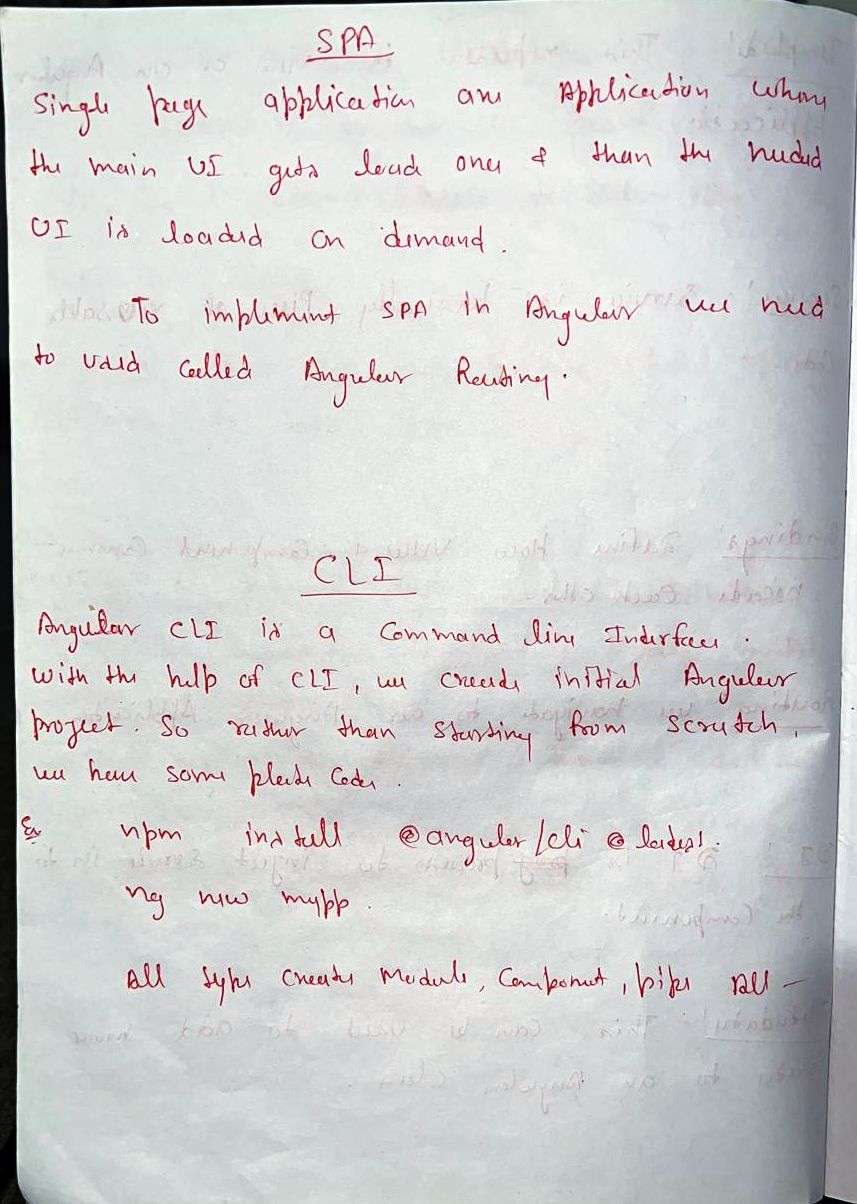 SPA
Single page application are Application where
the main UI gets load once & than the needed
UI is loaded on demand.
To implement SPA in Angular we need
to used called Angular Routing.
CLI
Angular CLI is a Command line Interface.
with the help of CLI, we create initial Angular
project. So rather than starting from scratch,
we have some plate Code.
Ex npm install @angular/cli @latest.
ng new mypp.
All type Create Module, Component, pipe All -